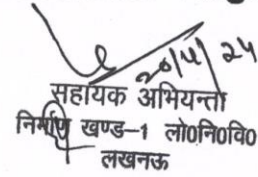 20/4/24
सहायक अभियन्ता
निर्माण खण्ड-1 लो0नि0वि0
लखनऊ